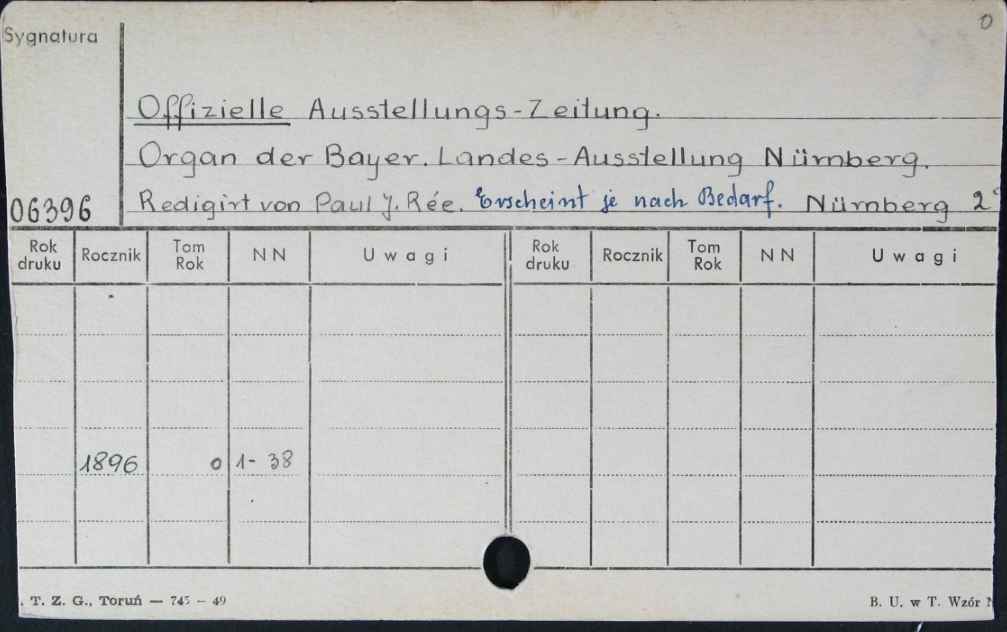 0
Sygnatura
Offizielle Ausstellungs-Zeitung.
Organ der Bayer. Landes-Ausstellung Nürnberg.
06396 Redigirt von Paul J. Rée. Erscheint je nach Bedarf. Nürnberg 2°
Rok druku Rocznik Tom Rok NN Uwagi Rok druku Rocznik Tom Rok NN Uwagi
1896 0 1-38
. T. Z. G., Toruń — 745 — 49 B. U. w T. Wzór